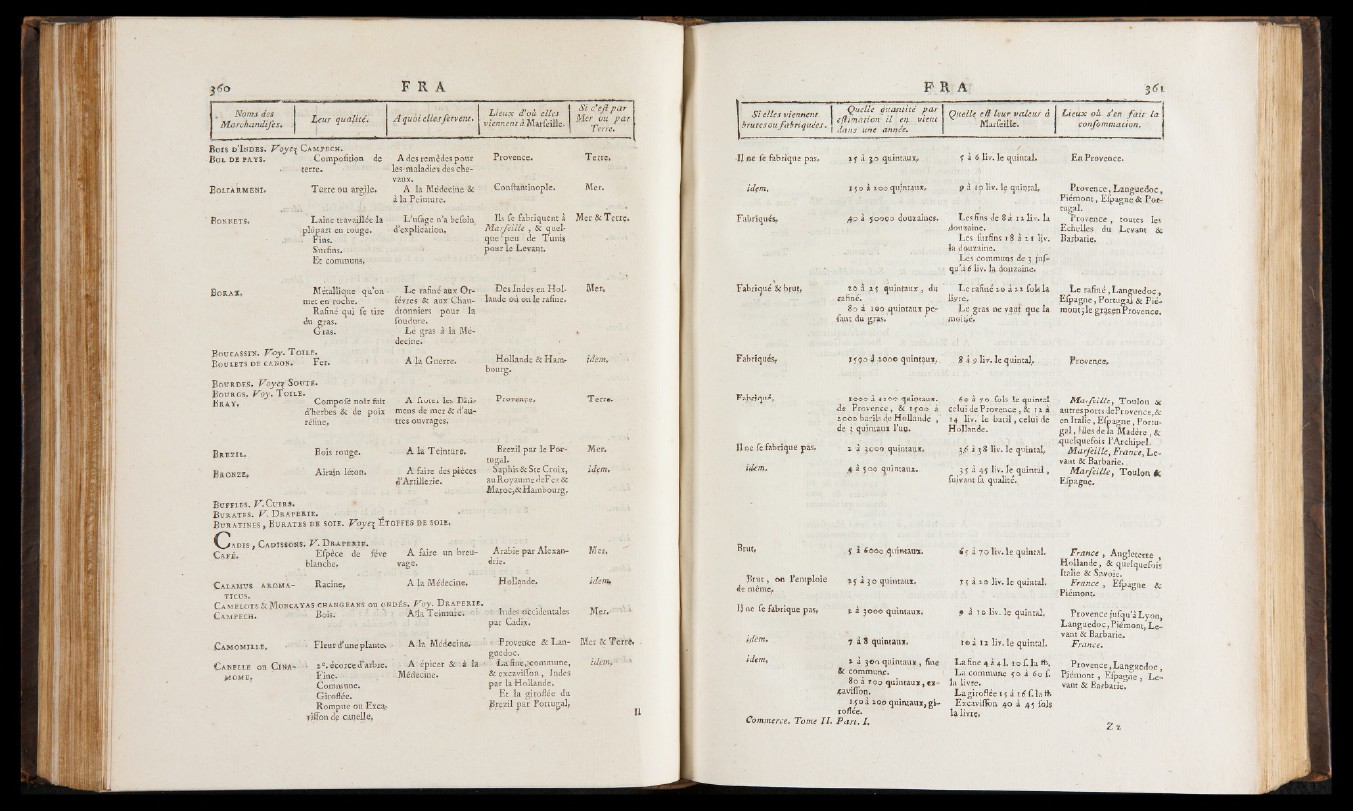 360 F R A
Noms des Marchandises. | Leur qualité. | A quoi elles servent. | Lieux d'où elles viennent à Marseille. | Si c'est par Mer ou par Terre.
BOIS D'INDES. Voyez CAMPECH.
BOL DE PAYS. Composition de A des remèdes pour Provence. Terre,
terre. les maladies des che-
vaux.
BOLIARMENI. Terre ou argile. A la Médecine & Constantinople. Mer.
à la Peinture.
BONNETS. Laine travaillée la L'usage n'a besoin Ils se fabriquent à Mer & Terre.
plûpart en rouge. d'explication. Marseille, & quel-
Fins. que peu de Tunis
Surfins. pour le Levant.
Et communs.
BORAX. Métallique qu'on Le rafiné aux Or- Des Indes en Hol- Mer,
met en roche. févres & aux Chau- lande où on le rafine.
Rafiné qui se tire dronniers pour la
du gras. soudure.
Gras. Le gras à la Mé-
decine.
BOUCASSIN. Voy. TOILE.
BOULETS DE CANON. Fer. A la Guerre. Hollande & Ham- idem,
bourg.
BOURDES. Voyez SOUTE.
BOURGS. Voy. TOILE.
BRAY, Composé noir fait A froter les Bâti- Provence, Terre.
d'herbes & de poix mens de mer & d'au-
résine, tres ouvrages.
BREZIL. Bois rouge. A la Teinture. Brezil par le Por- Mer.
tugal.
BRONZE, Airain léton. A faire des pièces Saphis & Ste Croix, idem.
d'Artillerie. au Royaume de Fez &
Maroc, & Hambourg.
BUFFLES. V. CUIRS.
BURATES. V. DRAPERIE.
BURATINES, BURATES DE SOIE. Voyez ÉTOFFES DE SOIE.
CADIS, CADISSONS. V. DRAPERIE.
CAFÉ. Espéce de féve A faire un breu- Arabie par Alexan- Mer,
blanche, vage. drie.
CALAMUS AROMA- Racine, A la Médecine. Hollande. idem,
TICUS.
CAMELOTS & MONCAYAS CHANGEANS OU ONDÉS. Voy. DRAPERIE.
CAMPECH. Bois. A la Teinture. Indes occidentales Mer.
par Cadix.
CAMOMILLE, Fleur d'une plante. A la Médecine. Provence & Lan- Mer & Terre.
guedoc.
CANELLE OU CINA- 2e. écorce d'arbre. A épicer & à la La fine, commune, idem,
MOME, Fine. Médecine. & excavisson, Indes
Commune. par la Hollande.
Giroflée. Et la giroflée du
Rompue ou Exca- Brezil par Portugal,
visson de canelle,
Il
F R A 361
Si elles viennent brutes ou fabriquées. | Quelle quantité par estimation il en vient dans une année. | Quelle est leur valeur à Marseille. | Lieux où s'en fait la consommation.
Il ne se fabrique pas, 25 à 30 quintaux, 5 à 6 liv. le quintal. En Provence.
idem. 150 à 200 quintaux, 9 à 10 liv. le quintal, Provence, Languedoc,
Piémont, Espagne & Por-
tugal.
Fabriqués, 40 à 50000 douzaines. Les fins de 8 à 12 liv. la Provence, toutes les
douzaine. Echelles du Levant &
Les surfins 18 à 21 liv. Barbarie.
la douzaine.
Les communs de 3 jus-
qu'à 6 liv. la douzaine.
Fabriqué & brut, 20 à 25 quintaux, du Le rafiné 20 à 22 sols la Le rafiné, Languedoc,
rafiné. livre. Espagne, Portugal & Pié-
80 à 100 quintaux pe- Le gras ne vaut que la mont; le gras en Provence.
sant du gras. moitié.
Fabriqués, 1500 à 2000 quintaux, 8 à 9 liv. le quintal, Provence,
Fabriqué, 1000 à 1200 quintaux. 60 à 70 sols le quintal Marseille, Toulon &
de Provence, & 1500 à celui de Provence, & 12 à autres ports de Provence, &
2000 barils de Hollande, 14 liv. le baril, celui de en Italie, Espagne, Portu-
de 2 quintaux l'un. Hollande. gal, Isles de la Madère, &
quelquefois l'Archipel.
Il ne se fabrique pas. 2 à 3000 quintaux. 36 à 38 liv. le quintal, Marseille, France, Le-
vant & Barbarie.
idem. 4 à 500 quintaux. 35 à 45 liv. le quintal, Marseille, Toulon &
suivant sa qualité. Espagne.
Brut, 5 à 6000 quintaux. 65 à 70 liv. le quintal. France, Angleterre,
Hollande, & quelquefois
Italie & Savoie.
Brut, on l'emploie 25 à 30 quintaux. 15 à 20 liv. le quintal. France, Espagne &
de même, Piémont.
Il ne se fabrique pas, 2 à 3000 quintaux. 9 à 10 liv. le quintal. Provence jusqu'à Lyon,
Languedoc, Piémont, Le-
vant & Barbarie.
idem. 7 à 8 quintaux. 10 à 12 liv. le quintal. France.
idem, 2 à 300 quintaux, fine La fine 4 à 4 l. 10 s. la ℔. Provence, Languedoc,
& commune. La commune 50 à 60 s. Piémont, Espagne, Le-
80 à 100 quintaux, ex- la livre. vant & Barbarie.
cavisson. La giroflée 15 à 16 s. la ℔
150 à 200 quintaux, gi- Excavisson 40 à 45 sols
roflée. la livre,
Commerce. Tome II. Part. I. Z z